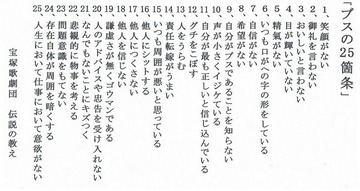 「ブスの25箇条」
1、笑顔がない
2、御礼を言わない
3、おいしいと言わない
4、目が輝いていない
5、精気がない
6、いつも口がへの字の形をしている
7、自信がない
8、希望がない
9、自分がブスであることを知らない
10、声が小さくイジケている
11、自分が最も正しいと信じ込んでいる
12、グチをこぼす
13、他人をうらむ
14、責任転嫁がうまい
15、いつも周囲が悪いと思っている
16、他人にシットする
17、他人につくさない
18、他人を信じない
19、謙虚さが無くゴウマンである
20、人のアドバイスや忠告を受け入れない
21、なんでもないことにキズつく
22、悲観的に物事を考える
23、問題意識をもてない
24、存在自体が周囲を暗くする
25、人生において仕事において意欲がない
宝塚歌劇団 伝説の教え